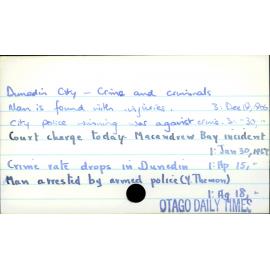 Dunedin City - Crime and criminals
Man is found with injuries. 3: Dec 19,
City police winning war against crime. 3: -30, "
Court charge today. Macandrew Bay incident
1: Jan 30, 1967
Crime rate drops in Dunedin 1: Ap 15, "
Man arrested by armed police (Y.Thomson)
1: Ag 18, "
OTAGO DAILY TIMES